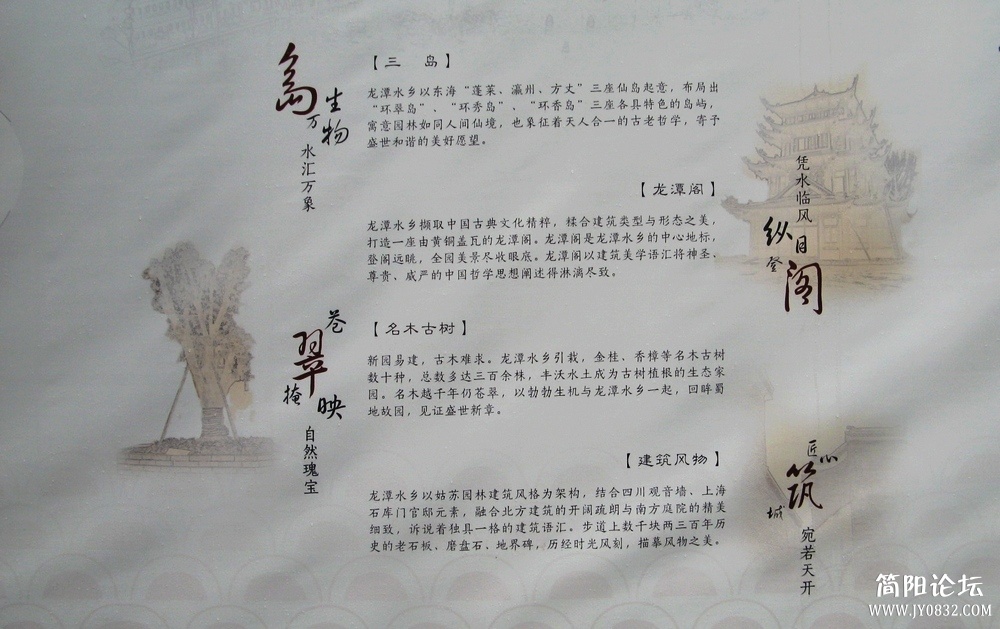 岛生万物
水汇万象
【三 岛】
龙潭水乡以东海“蓬莱、瀛州、方丈”三座仙岛起意，布局出
“环翠岛”、“环秀岛”、“环香岛”三座各具特色的岛屿，
寓意园林如同人间仙境，也象征着天人合一的古老哲学，寄予
盛世和谐的美好愿望。
凭水临风
纵目登阁
【龙潭阁】
龙潭水乡撷取中国古典文化精粹，糅合建筑类型与形态之美，
打造一座由黄铜盖瓦的龙潭阁。龙潭阁是龙潭水乡的中心地标，
登阁远眺，全园美景尽收眼底。龙潭阁以建筑美学语汇将神圣、
尊贵、威严的中国哲学思想阐述得淋漓尽致。
苍翠掩映
自然瑰宝
【名木古树】
新园易建，古木难求。龙潭水乡引栽，金桂、香樟等名木古树
数十种，总数多达三百余株，丰沃水土成为古树植根的生态家
园。名木越千年仍苍翠，以勃勃生机与龙潭水乡一起，回眸蜀
地故园，见证盛世新章。
匠心筑城
宛若天开
【建筑风物】
龙潭水乡以姑苏园林建筑风格为架构，结合四川观音墙、上海
石库门官邸元素，融合北方建筑的开阔疏朗与南方庭院的精美
细致，诉说着独具一格的建筑语汇。步道上数千块两三百年历
史的老石板、磨盘石、地界碑，历经时光风刻，描摹风物之美。
简阳论坛
WWW.JY0832.COM